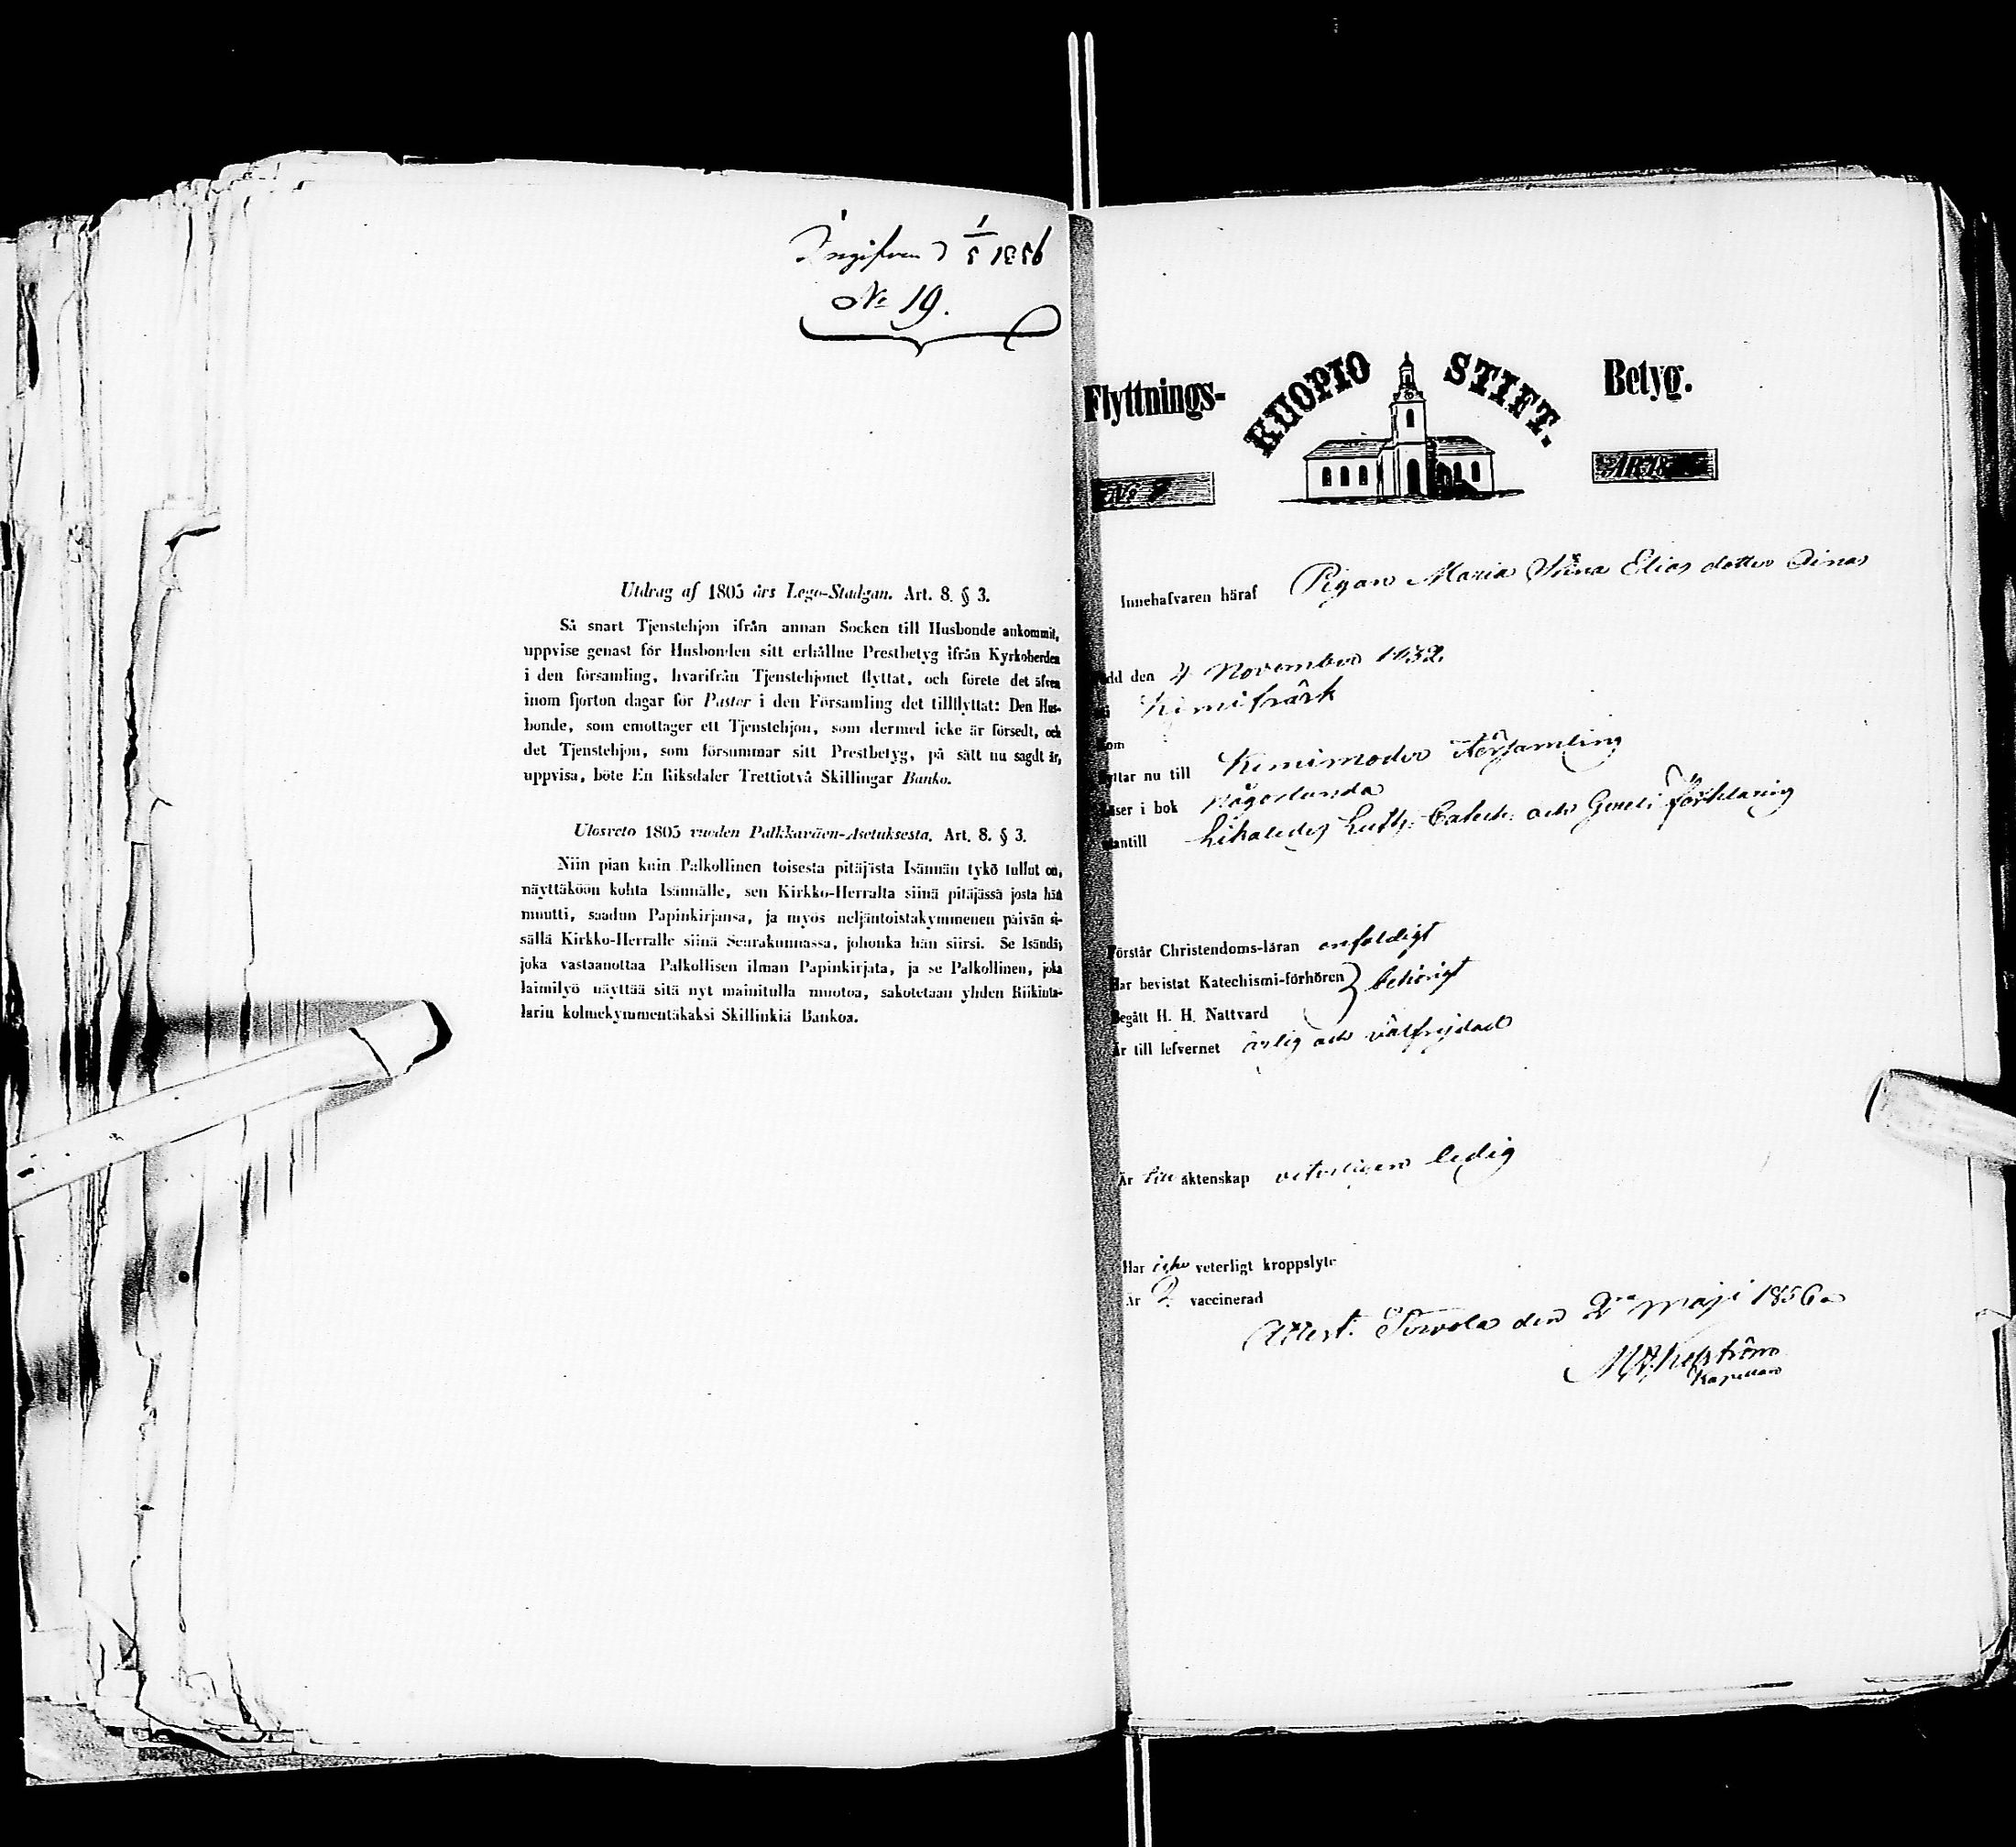 Ingifven d 1/5 1856
No 19.
Utdrag af 1805 års Lego-Stadgan. Art. 8. § 3.
Så snart Tjenstehjon ifrån annan Socken till Husbonde ankommit,
uppvise genast för Husbonden sitt erhållne Prestbetyg ifrån Kyrkoherden
i den församling, hvarifrån Tjenstehjonet flyttat, och förete det äfven
inom fjorton dagar för Pastor i den Församling det tillflyttat: Den Hus-
bonde, som emottager ett Tjenstehjon, som dermed icke är försedt, och
det Tjenstehjon, som försummar sitt Prestbetyg, på sätt nu sagdt är,
uppvisa, böte En Riksdaler Trettiotvå Skillingar Banko.
Ulosveto 1805 vuoden Palkkaväen-Asetuksesta. Art. 8. § 3.
Niin pian kuin Palkollinen toisesta pitäjästa Isännän tykö tullut on,
näyttäköön kohta Isännälle, sen Kirkko-Herralta siinä pitäjässä josta hän
muutti, saadun Papinkirjansa, ja myös neljäntoistakymmenen päivän si-
sällä Kirkko-Herralle siinä Seurakunnassa, johonka hän siirsi. Se Isändä,
joka vastaanottaa Palkollisen ilman Papinkirjata, ja se Palkollinen, joka
laimilyö näyttää sitä nyt mainitulla muotoa, sakotetaan yhden Riikinta-
larin kolmekymmentäkaksi Skillinkiä Bankoa.
Flyttnings- KUOPIO STIFT. Betyg.
No ÅR 18
Innehafvaren häraf Pigan Maria Stina Elias dotter
född den 4 November 1832.
i Kemiträsk
som
flyttar nu till Kemimoder Församling
läser i bok någorlunda
utantill likaledes Luth: Catech: och förklaring
Förstår Christendoms-läran enfaldigt
Har bevistat Katechismi-förhören } behörigt
Begått H. H. Nattvard
Är till lefvernet ärlig och välfrejdad
Är till äktenskap veterligen ledig
Har icke veterligt kroppslyte
Är vaccinerad
Attest. Terwola den Maji 1856.
Kapellan